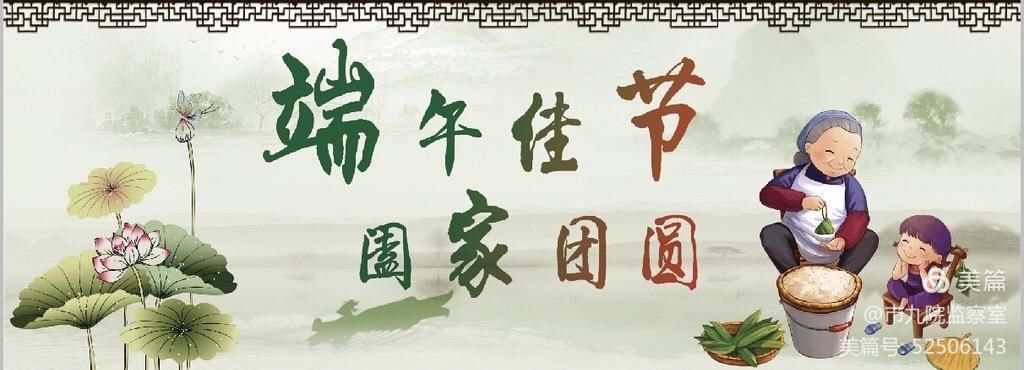 端午佳节
阖家团圆
美篇
@市九院监察室
美篇号: 52506143